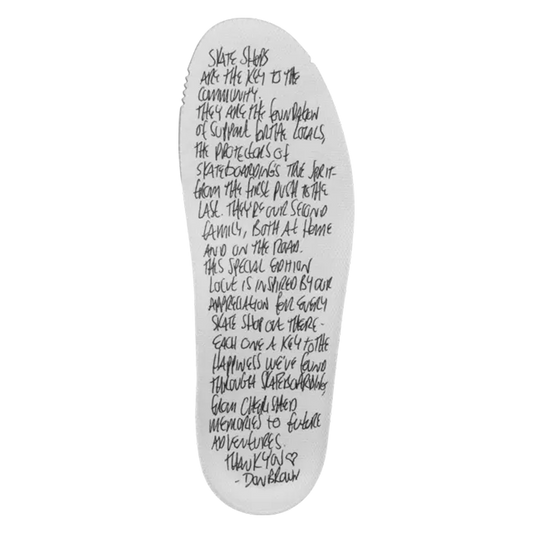 SKATE SHOPS
ARE THE KEY TO THE
COMMUNITY.
THEY ARE THE FOUNDATION
OF SUPPORT FOR THE LOCALS,
THE PROTECTORS OF
SKATEBOARDING'S TRUE SPIRIT-
FROM THE FIRST PUSH TO THE
LAST. THEY'RE OUR SECOND
FAMILY, BOTH AT HOME
AND ON THE ROAD.
THIS SPECIAL EDITION
IS INSPIRED BY OUR
APPRECIATION FOR EVERY
SKATE SHOP OUT THERE-
EACH ONE A KEY TO THE
HAPPINESS WE'VE FOUND
THROUGH SKATEBOARDING,
FROM CHERISHED
MEMORIES TO FUTURE
ADVENTURES.
THANK YOU ♡
- DON BROWN